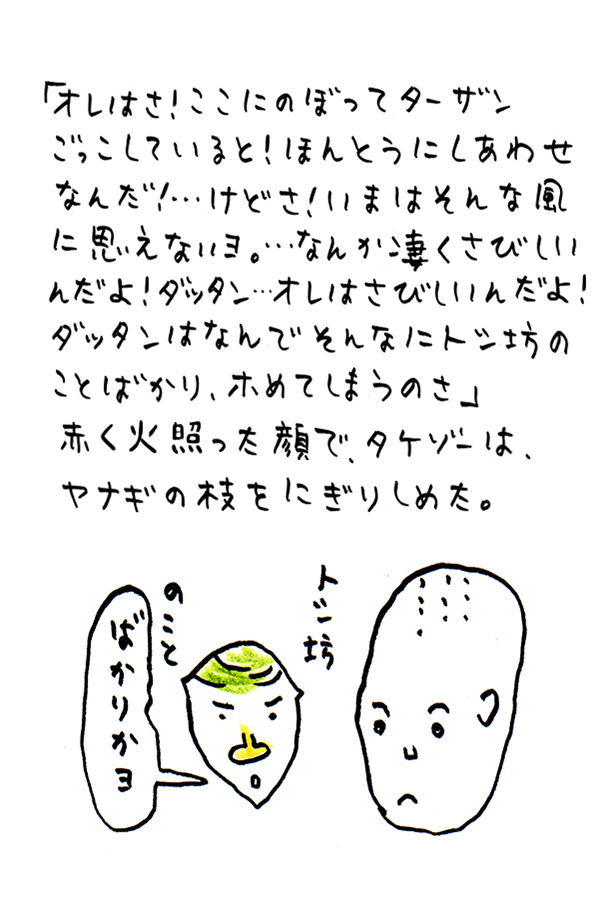 「オレはさ!ここにのぼってターザン
ごっこしていると!ほんとうにしあわせ
なんだ!…けどさ!いまはそんな風
に思えないヨ。…なんか凄くさびしい
んだよ!ダッタン…オレはさびしいんだよ!
ダッタンはなんでそんなにトシ坊の
ことばかり、ホめてしまうのさ」
赤く火照った顔で、タケゾーは、
ヤナギの枝をにぎりしめた。
トシ坊
のこと
ばかりかヨ